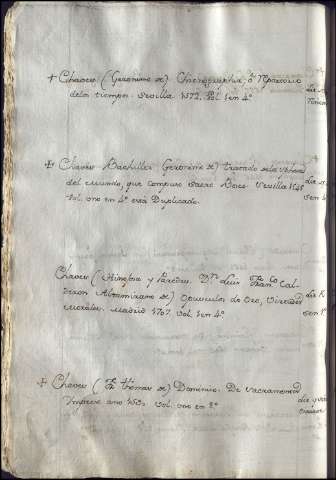 + Chaves (Geronimo de) Chronographia, ò Reportorio
delos tiempos. Sevilla 1572. Vol. 1 en 4º
+ Chaves Bachiller Geronimo de) tratado de la Sphera
del Mundo, que compuso Sacro Bosco. Sevilla 1545
Vol. uno en 4º està Duplicado.
Chaves (Hinojosa y Paredes. Dn. Luis Franco. Cal-
deron Altamirano de) Opusculos de Oro, Virtudes
Morales. Madrid 1707. Vol. 1 en 4º
+ Chaves (Fr. thomas de) Dominico. De Sacramentis
Impreso ano Vol. uno en 8º